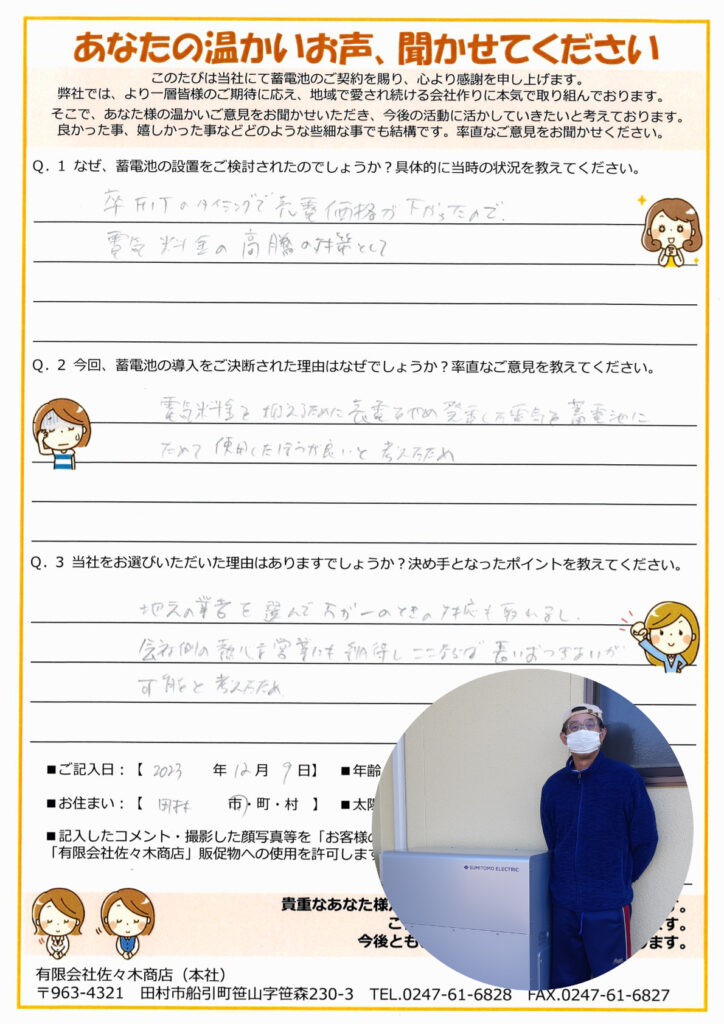 あなたの温かいお声、聞かせてください
このたびは当社にて蓄電池のご契約を賜り、心より感謝を申し上げます。
弊社では、より一層皆様のご期待に応え、地域で愛され続ける会社作りに本気で取り組んでおります。
そこで、あなた様の温かいご意見をお聞かせいただき、今後の活動に活かしていきたいと考えております。
良かった事、嬉しかった事などどのような些細な事でも結構です。率直なご意見をお聞かせください。
Q. 1 なぜ、蓄電池の設置をご検討されたのでしょうか?具体的に当時の状況を教えてください。
卒FITのタイミングで売電価格が下がったので、
電気料金の高騰の対策として
Q. 2 今回、蓄電池の導入をご決断された理由はなぜでしょうか?率直なご意見を教えてください。
電気料金を抑えるために売電をやめ発電した電気を蓄電池に
ためて使用したほうが良いと考えたため
Q. 3 当社をお選びいただいた理由はありますでしょうか?決め手となったポイントを教えてください。
地元の業者を選んで万が一のときの対応も取れるし、
会社側の熱心な営業にも納得しここならば長いおつきあいが
可能と考えたため
■ご記入日:【 2023 年 12月 9日】 ■年齢
■お住まい:【 田村 市・町・村 】 ■太陽
■記入したコメント・撮影した顔写真等を「お客様の
「有限会社佐々木商店」販促物への使用を許可します
SUMITOMO ELECTRIC
貴重なあなた様
す。
今後とも
ます。
有限会社佐々木商店（本社）
〒963-4321 田村市船引町笹山字笹森230-3 TEL.0247-61-6828 FAX.0247-61-6827